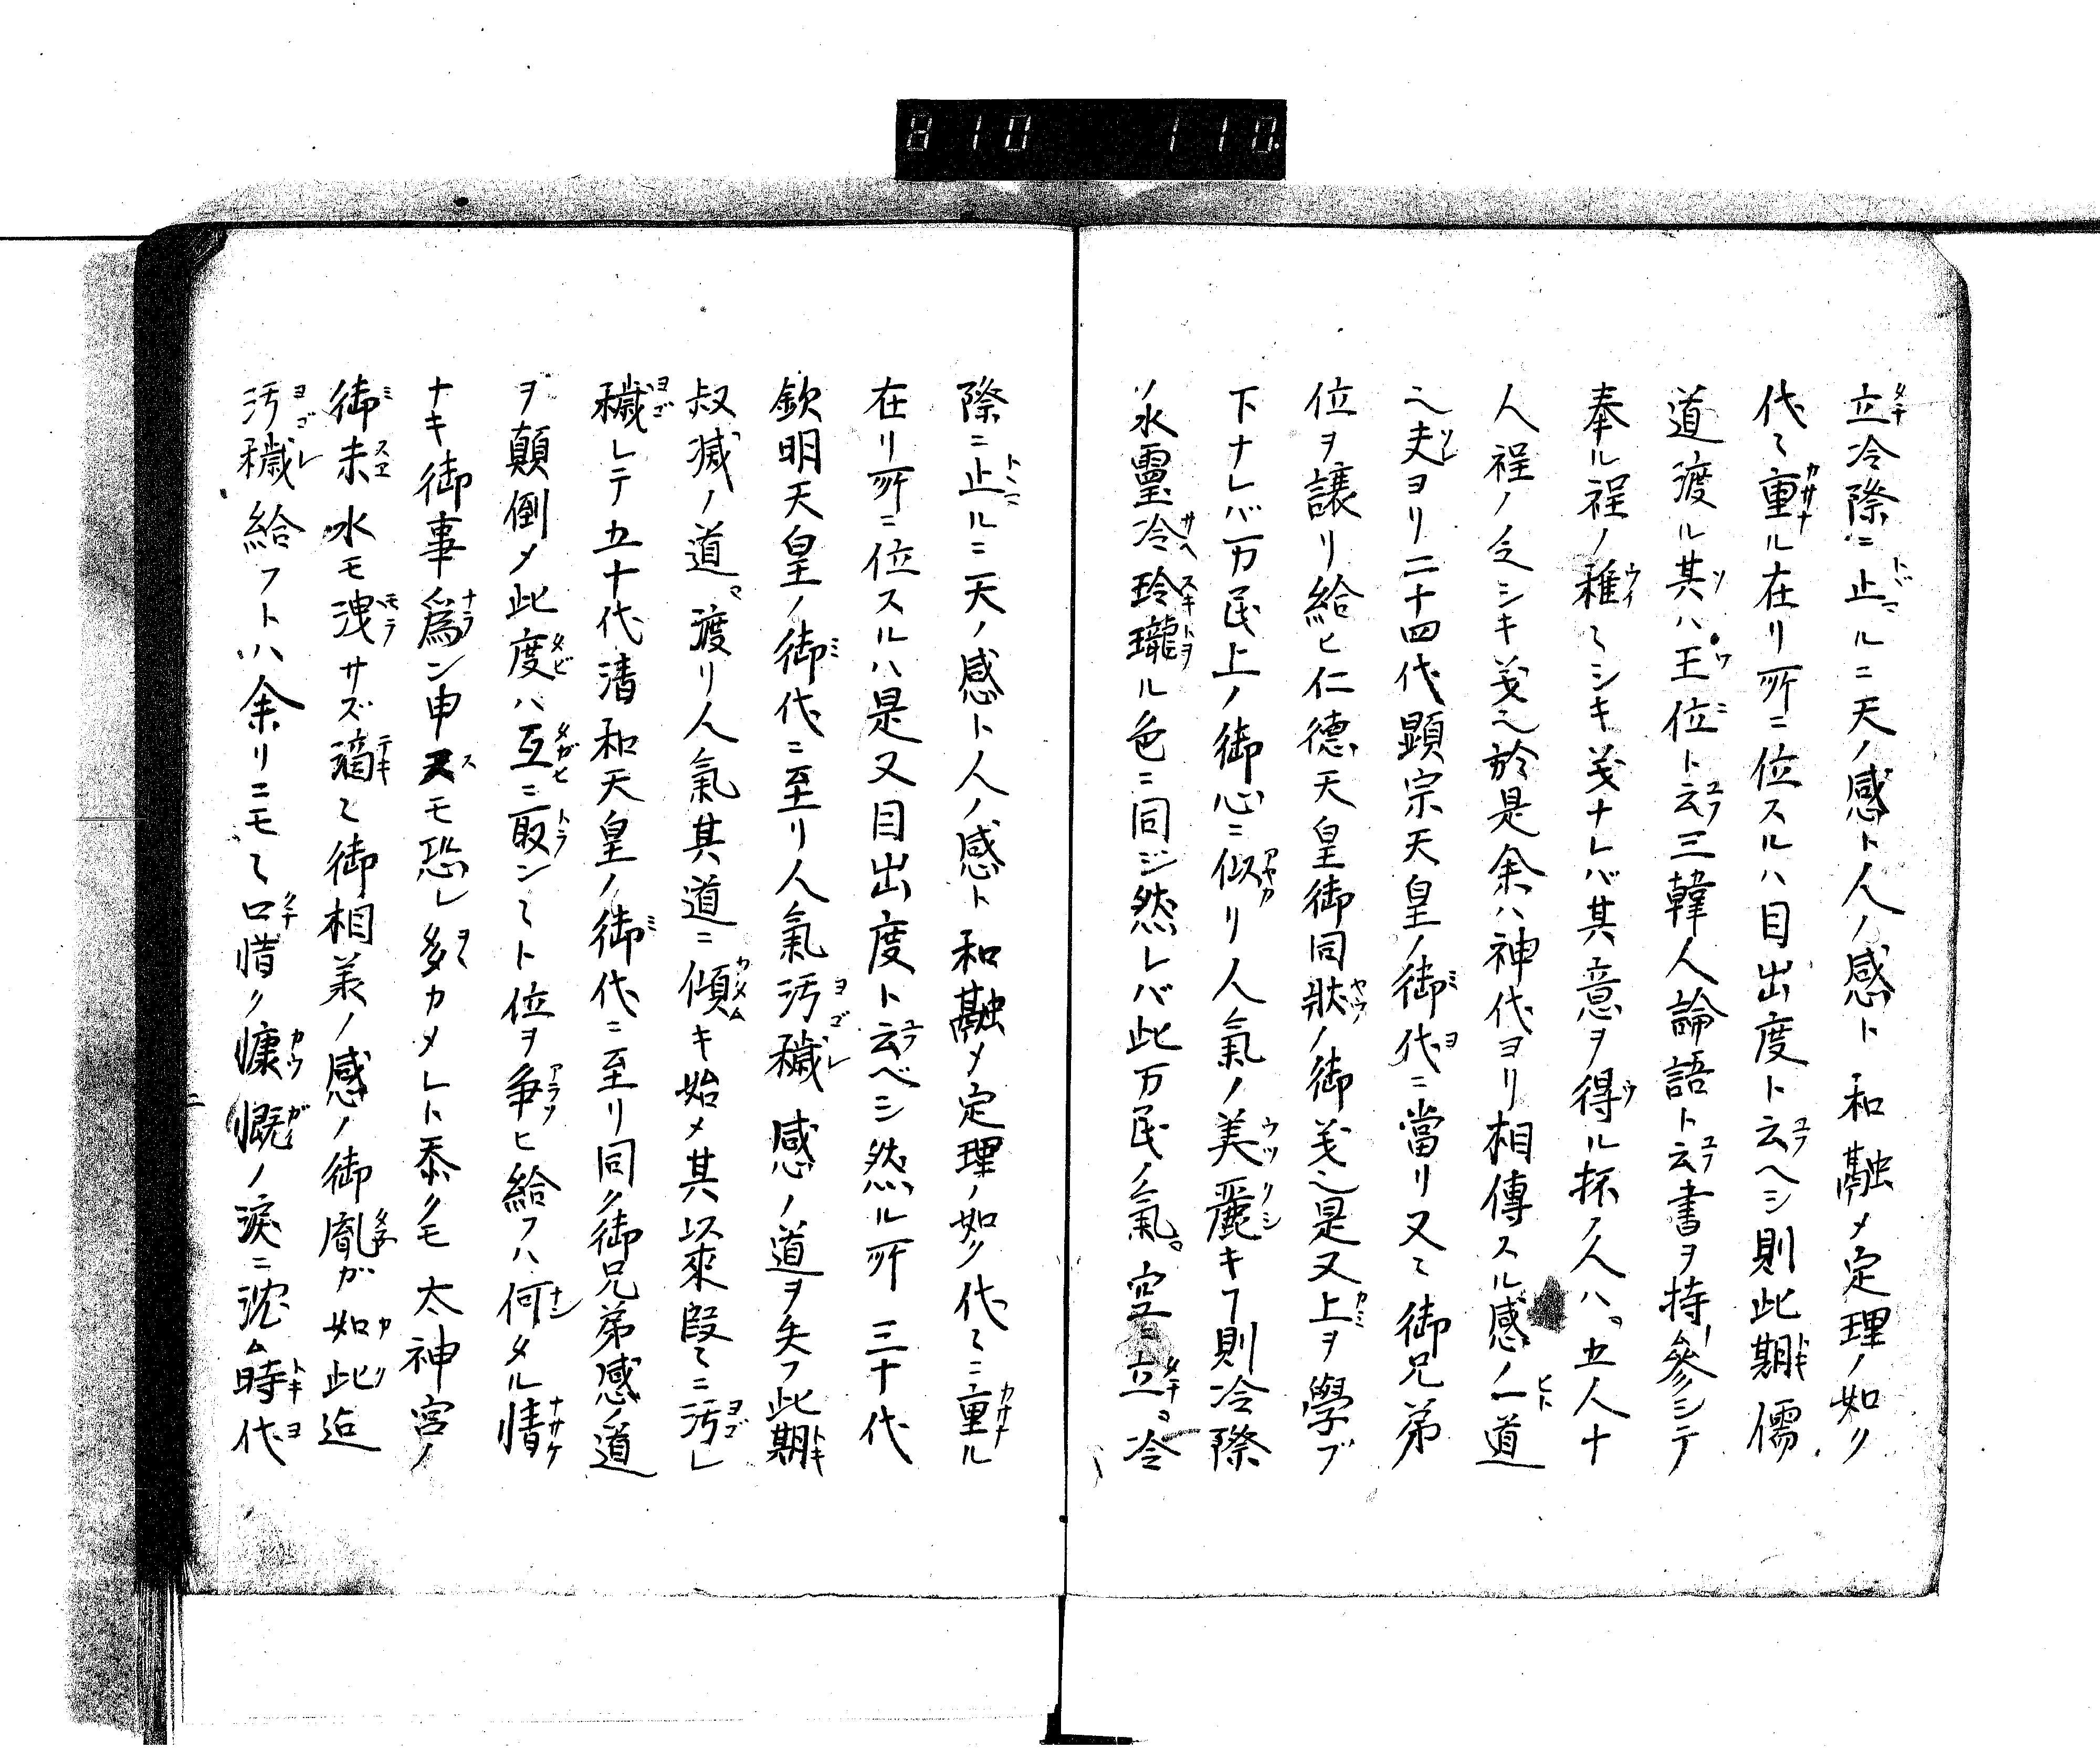 810 110.
立冷際ニ止ルニ天ノ感ト人ノ感ト和融メ定理ノ如ク
代〻重ル在リ所ニ位スルハ目出度ト云ヘシ則此期儒
道渡ル其ハ王位ト云三韓人論語ト云書ヲ持參シテ
奉ル程ノ稚〻シキ義ナレバ其意ヲ得ル抔ノ人ハ五人十
人程ノ乏シキ義之於是余ハ神代ヨリ相傳スル感ノ一道
之夫ヨリ二十四代顕宗天皇ノ御代ニ當リ又〻御兄弟
位ヲ譲リ給ヒ仁德天皇御同狀ノ御義之是又上ヲ學ブ
下ナレバ万民上ノ御心ニ似リ人氣ノ美麗キヿ則冷際
ノ水靈冷玲瓏ル色ニ同ジ然レバ此万民ノ氣空ニ立冷
際ニ止ルニ天ノ感ト人ノ感ト和融メ定理ノ如ク代〻ニ重ル
在リ所ニ位スルハ是又目出度ト云ベシ然ル所三十代
欽明天皇ノ御代ニ至リ人氣汚穢感ノ道ヲ失フ此期
叔滅ノ道渡リ人氣其道ニ傾キ始メ其以來段〻ニ汚レ
穢レテ五十代淸和天皇ノ御代ニ至リ同ク御兄弟感ノ道
ヲ顛倒メ此度ハ互ニ取ン〻ト位ヲ爭ヒ給フハ何タル情
ナキ御事爲ン申スモ恐レ多カメレト忝クモ太神宮ノ
御末水モ洩サズ滴〻御相羕ノ感ノ御胤ガ如此迠
汚穢給フトハ余リニモ〻口惜ク慷慨ノ淚ニ沈ム時代